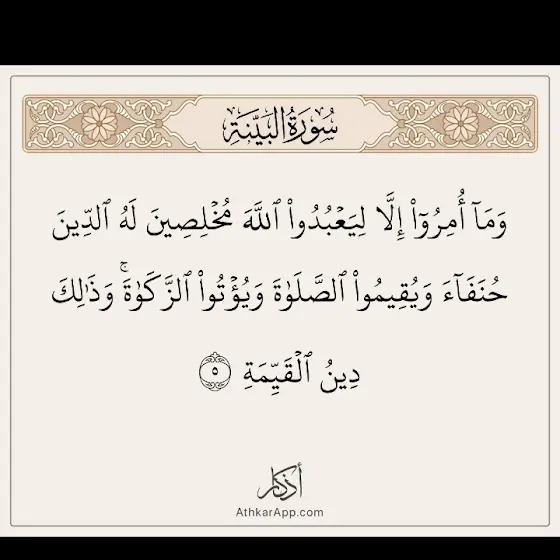 سُورَةُ البَيِّنَةِ
وَمَآ أُمِرُوٓا۟ إِلَّا لِيَعْبُدُوا۟ ٱللَّهَ مُخْلِصِينَ لَهُ ٱلدِّينَ
حُنَفَآءَ وَيُقِيمُوا۟ ٱلصَّلَوٰةَ وَيُؤْتُوا۟ ٱلزَّكَوٰةَ ۚ وَذَٰلِكَ
دِينُ ٱلْقَيِّمَةِ ٥
أذكار
AthkarApp.com